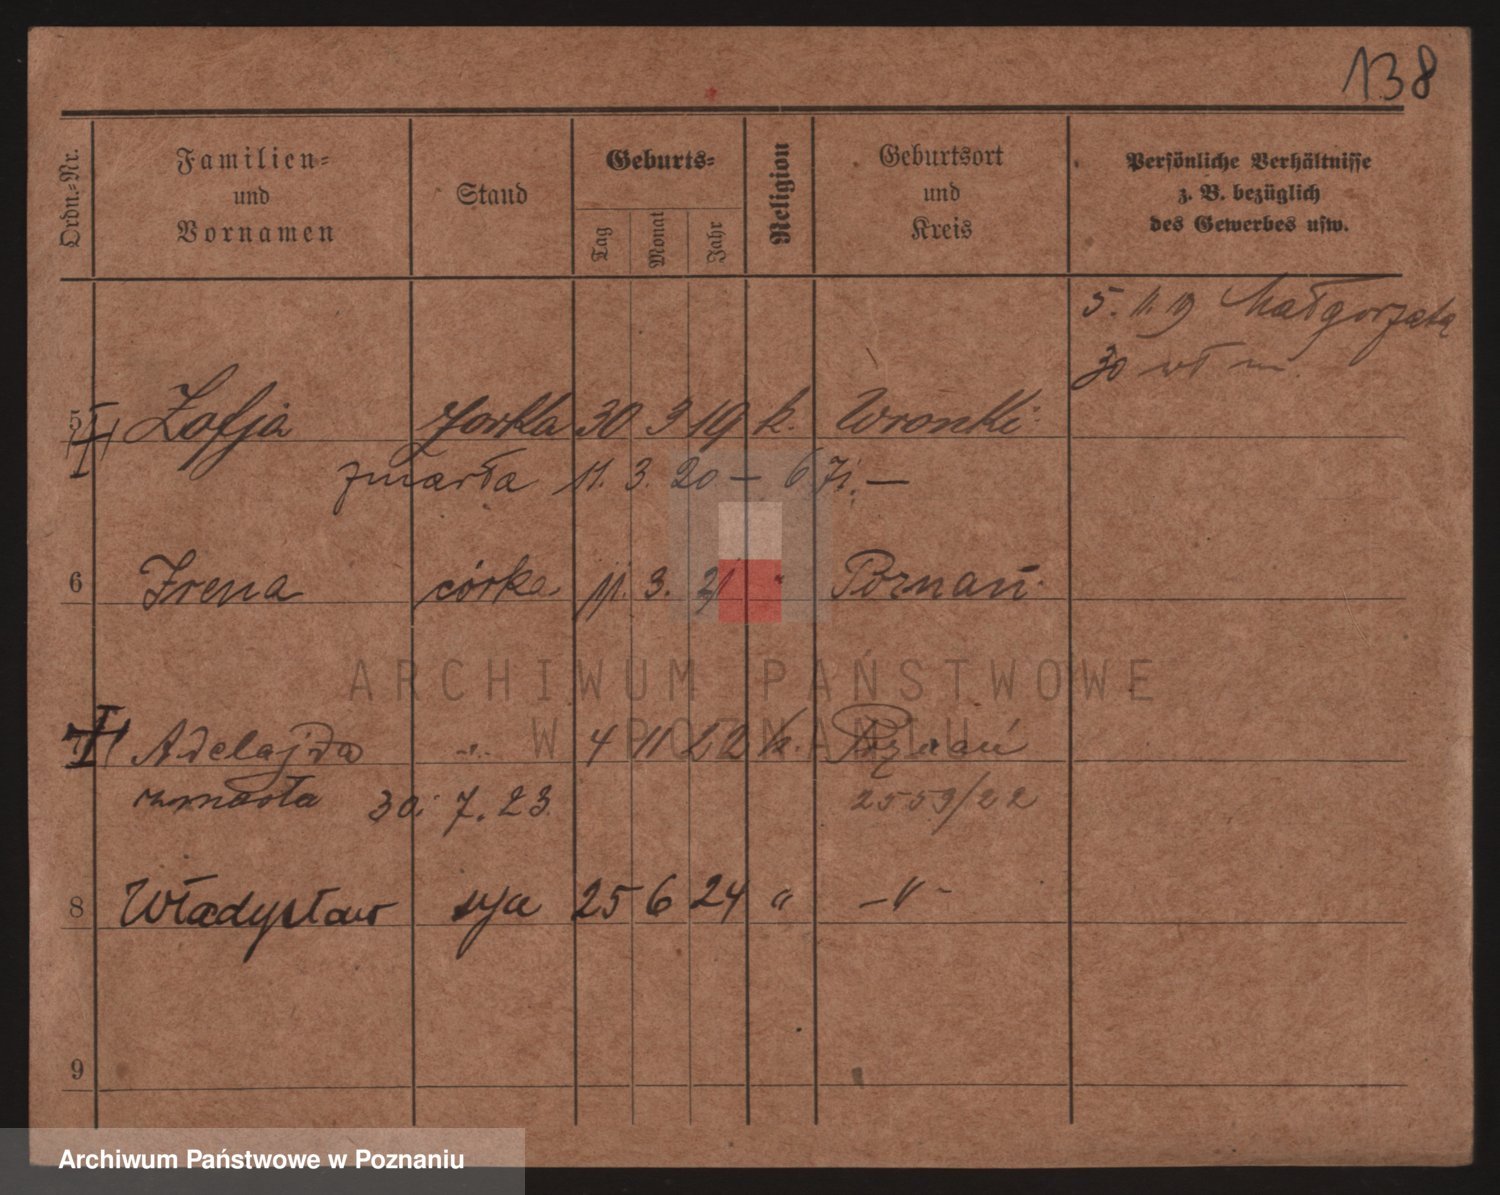 138
Ordn.-Nr.
Familien-
und
Vornamen
Stand
Geburts-
Tag
Monat
Jahr
Religion
Geburtsort
und
Kreis
Persönliche Verhältnisse
z. B. bezüglich
des Gewerbes usw.
5. 11. 19 Małgorzata
30
5 Zofja 30 3 19 k. Wronki
zmarła 11. 3. 20 —
6 Irena córka 11. 3. 21 " Poznań
Adelajda -"- 4 11 22 k. Poznań
zmarła 30. 7. 23 2559/22
8 Władysław syn 25 6 24 " -"-
9
ARCHIWUM PAŃSTWOWE
W POZNANIU
Archiwum Państwowe w Poznaniu